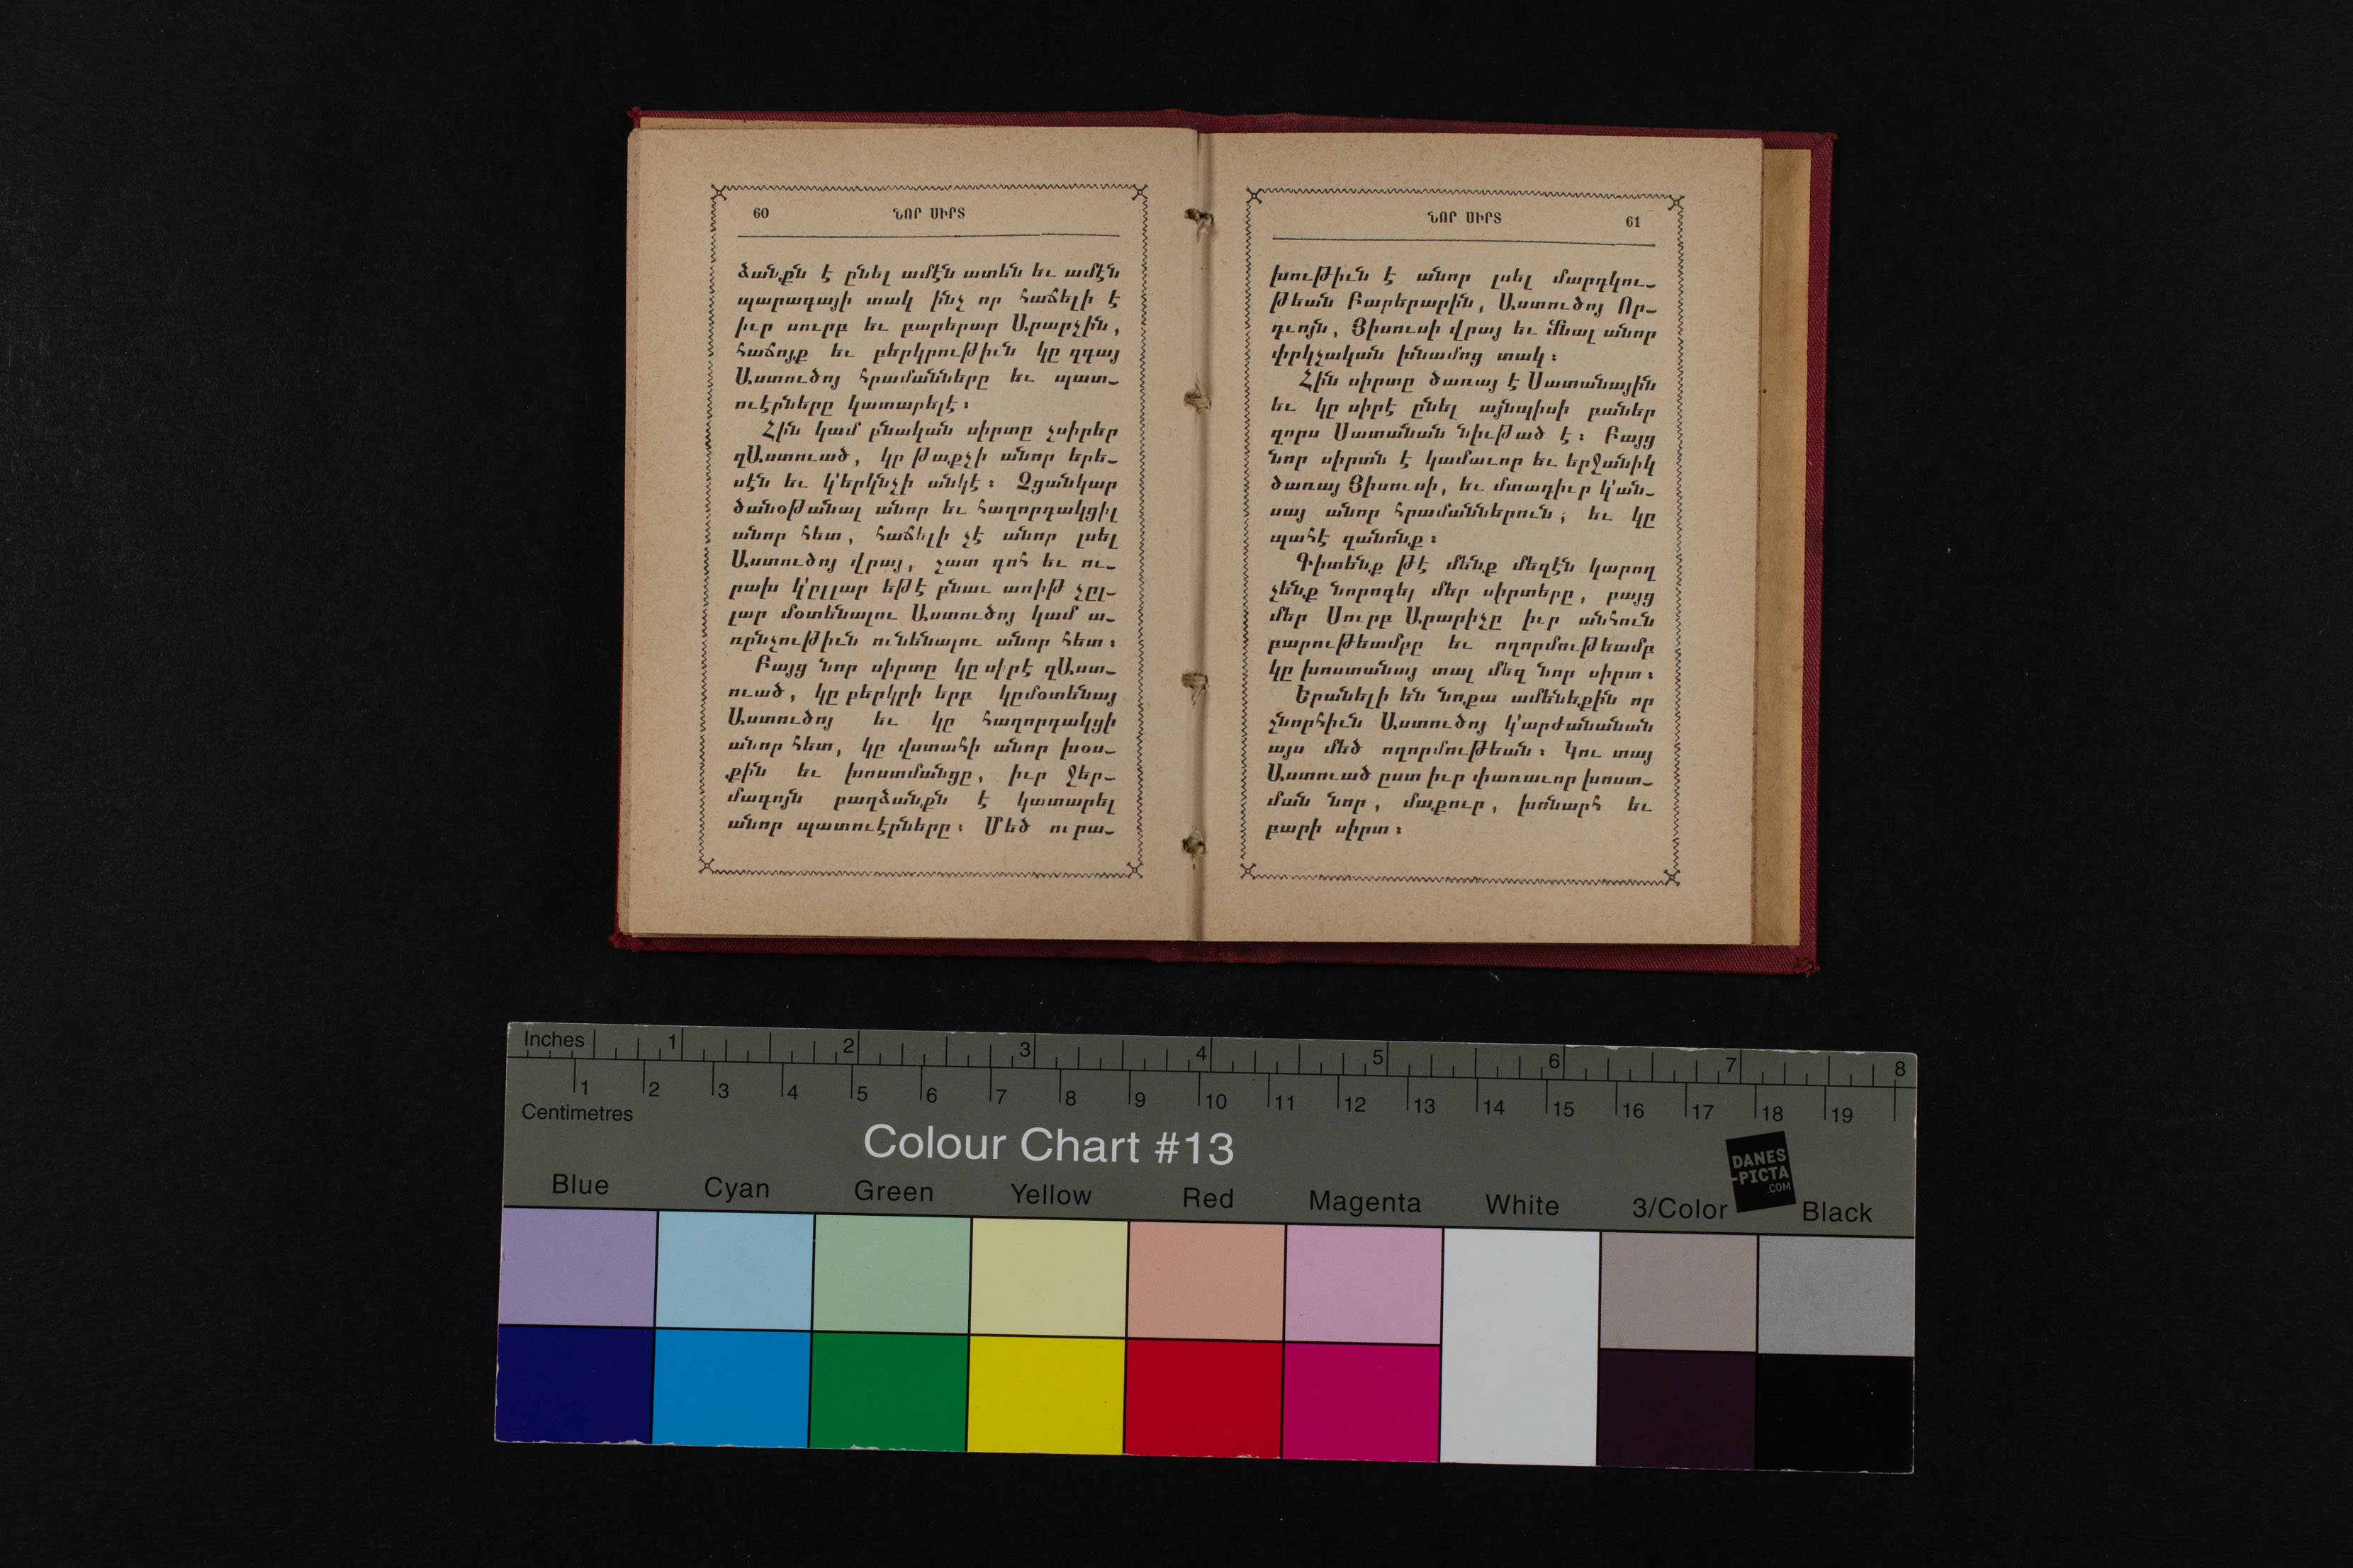 60 ՆՈՐ ՍԻՐՏ
ձանքն է ընել ամէն ատեն եւ ամէն
պարագայի տակ ինչ որ հաճելի է
իւր սուրբ եւ բարերար Արարչին,
հաճոյք եւ բերկրութիւն կը զգայ
Աստուծոյ հրամանները եւ պատ-
ուէրները կատարելէ։
Հին կամ բնական սիրտը չսիրեր
զԱստուած, կը թաքչի անոր երե-
սէն եւ կ՚երկնչի անկէ։ Չցանկար
ծանօթանալ անոր եւ հաղորդակցիլ
անոր հետ, հաճելի չէ անոր լսել
Աստուծոյ վրայ, շատ գոհ եւ ու-
րախ կ՚ըլլար եթէ բնաւ առիթ չըլ-
լար մօտենալու Աստուծոյ կամ ա-
ռընչութիւն ունենալու անոր հետ։
Բայց նոր սիրտը կը սիրէ զԱստ-
ուած, կը բերկրի երբ կըմօտենայ
Աստուծոյ եւ կը հաղորդակցի
անոր հետ, կը վստահի անոր խօս-
քին եւ խոստմանցը, իւր ջեր-
մագոյն բաղձանքն է կատարել
անոր պատուէրները։ Մեծ ուրա-
ՆՈՐ ՍԻՐՏ 61
խութիւն է անոր լսել մարդկու-
թեան Բարերարին, Աստուծոյ Որ-
դւոյն, Յիսուսի վրայ եւ մնալ անոր
փրկչական խնամոց տակ։
Հին սիրտը ծառայ է Սատանային
եւ կը սիրէ ընել այնպիսի բաներ
զորս Սատանան նիւթած է։ Բայց
նոր սիրտն է կամաւոր եւ երջանիկ
ծառայ Յիսուսի, եւ մտադիւր կ՚ան-
սայ անոր հրամաններուն, եւ կը
պահէ զանոնք։
Գիտենք թէ մենք մեզէն կարող
չենք նորոգել մեր սիրտերը, բայց
մեր Սուրբ Արարիչը իւր անհուն
բարութեամբը եւ ողորմութեամբ
կը խոստանայ տալ մեզ նոր սիրտ։
Երանելի են նոքա ամենեքին որ
շնորհիւն Աստուծոյ կ՚արժանանան
այս մեծ ողորմութեան։ Կու տայ
Աստուած ըստ իւր փառաւոր խոստ-
ման նոր, մաքուր, խոնարհ եւ
բարի սիրտ։
Inches 1 2 3 4 5 6 7 8
1 2 3 4 5 6 7 8 9 10 11 12 13 14 15 16 17 18 19
Centimetres
Colour Chart #13
DANES
-PICTA
.COM
Blue Cyan Green Yellow Red Magenta White 3/Color Black